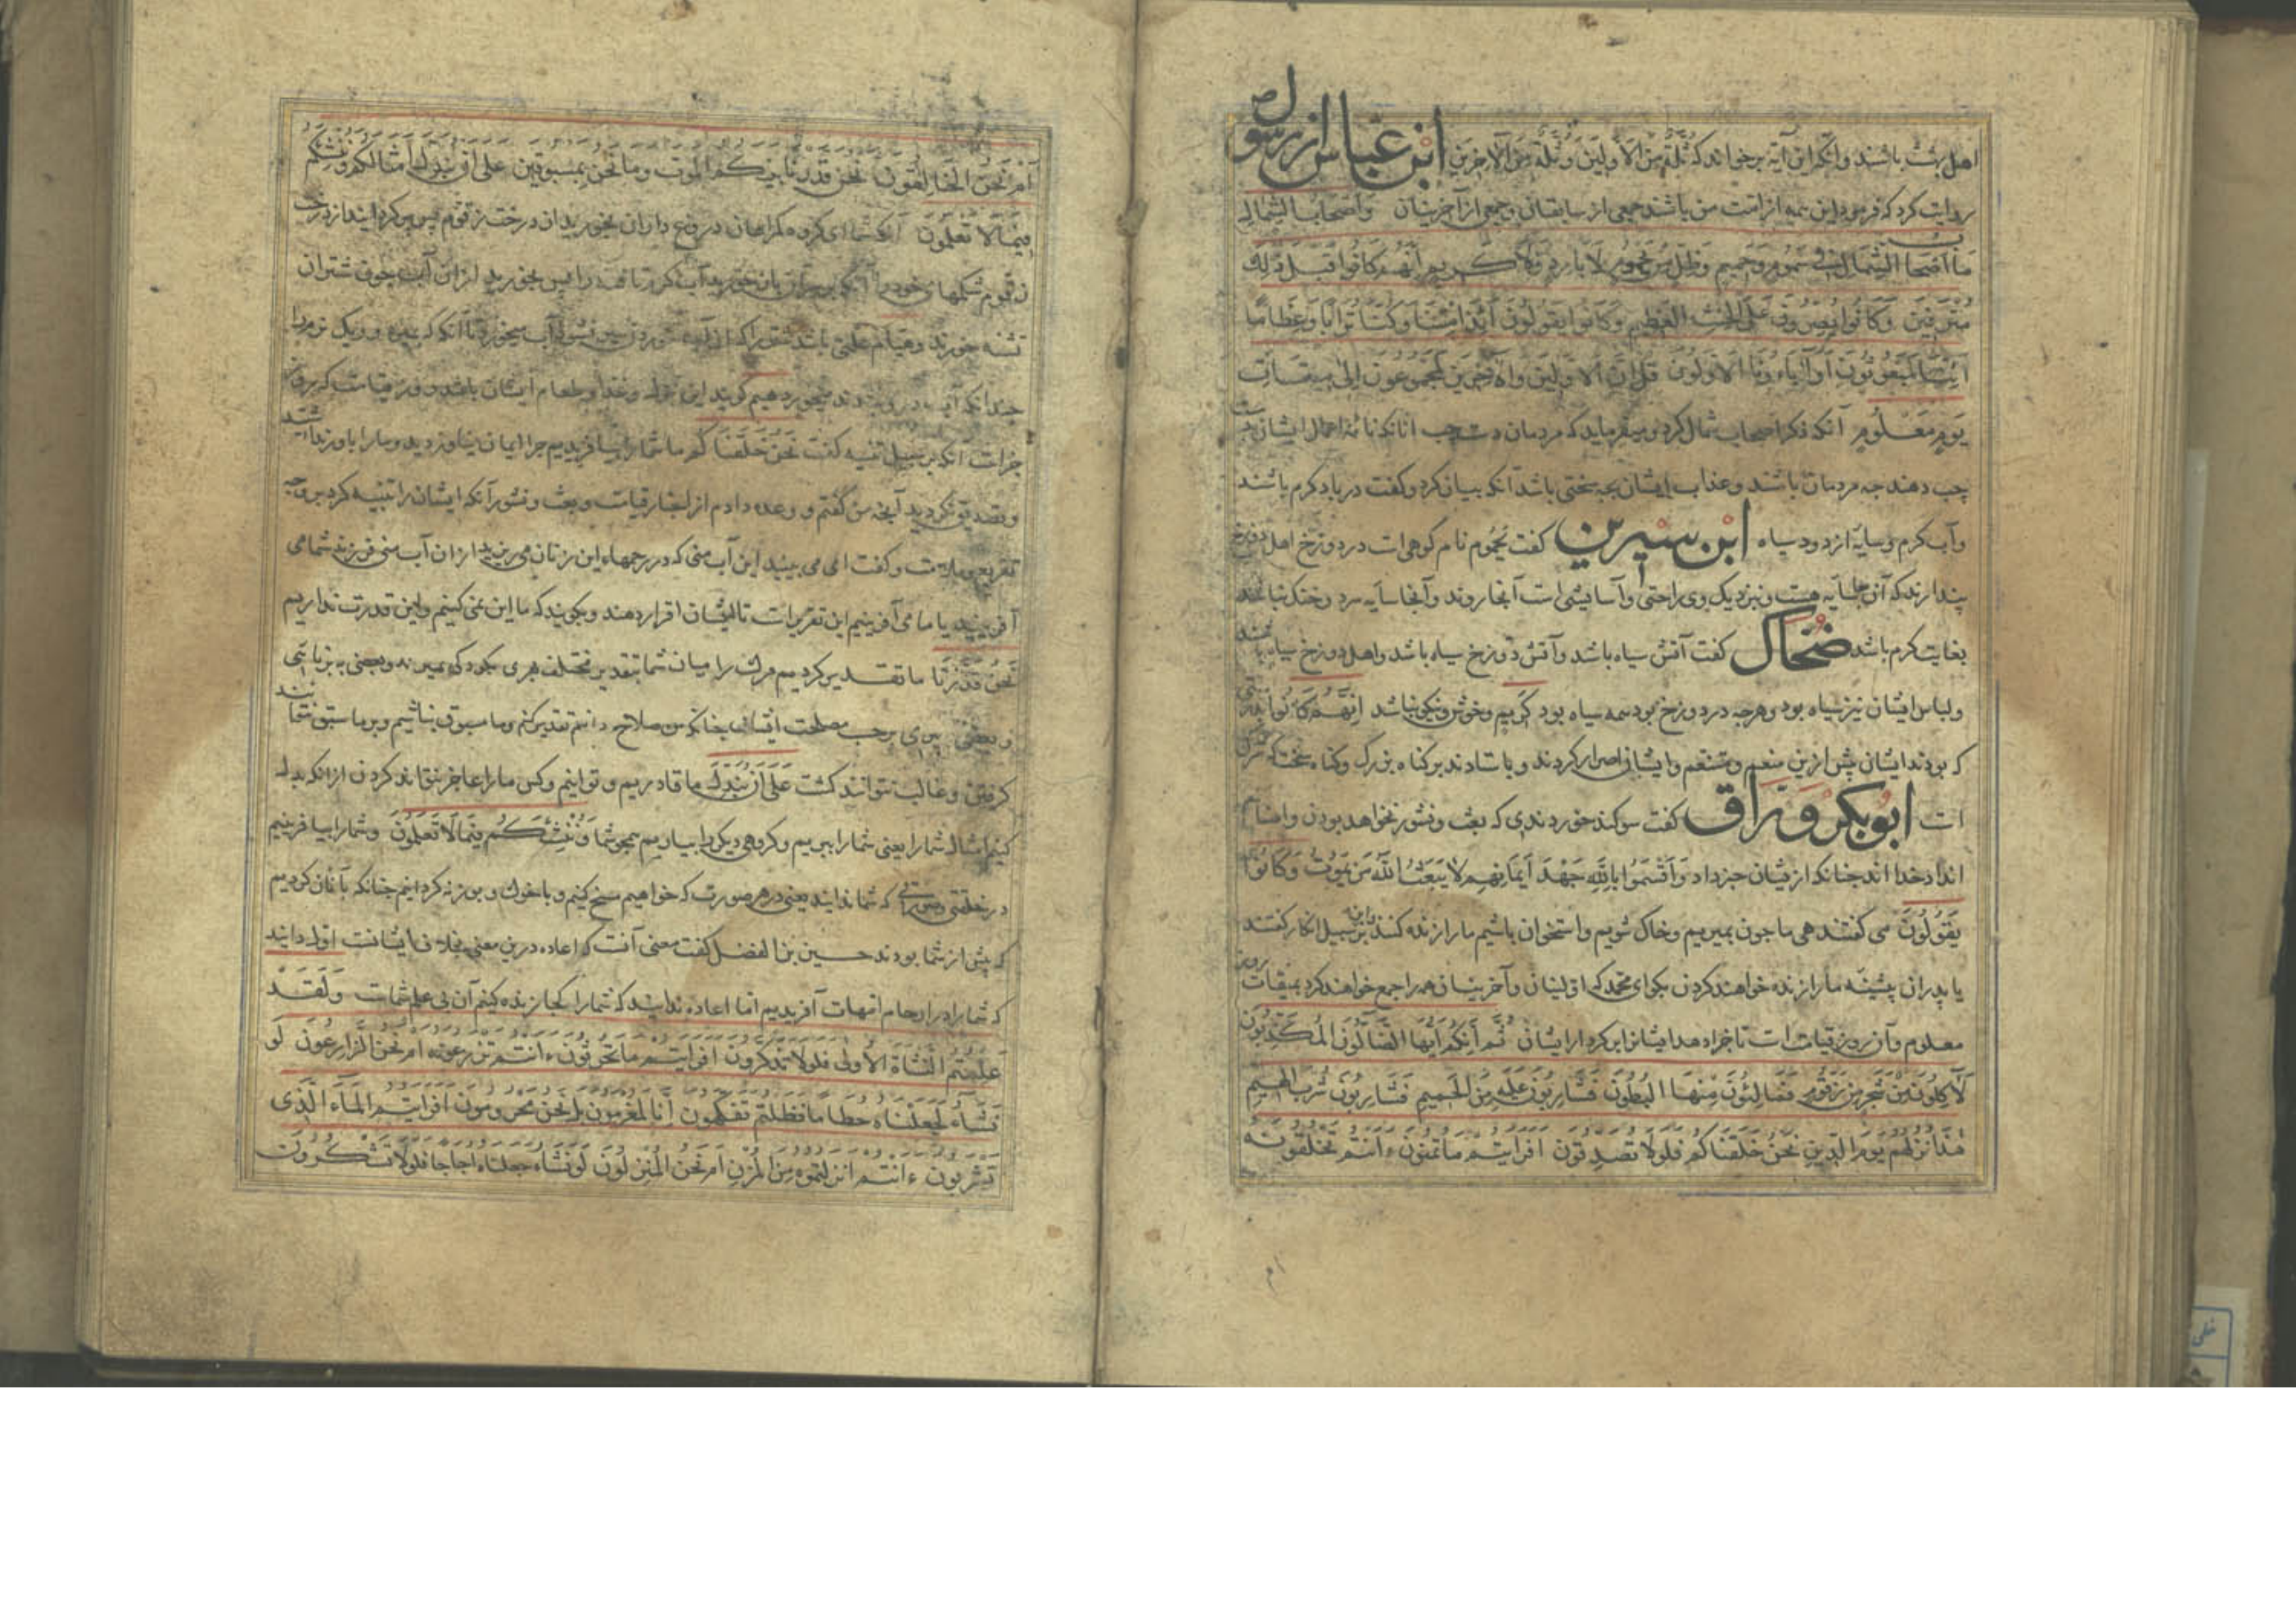 اهل بهشت باشند وانکه این آیه برخواند که ثُلَّةٌ مِنَ الأَوَّلِینَ وَثُلَّةٌ مِنَ الآخِرِینَ ابْن عَبّاس از رسول ص
روایت کرد که فرمود این همه از امّت من باشند جمعی از سابقان وجمعی از آخرینان وَأَصْحَابُ الشِّمَالِ
مَا أَصْحَابُ الشِّمَالِ فِی سَمُومٍ وَحَمِیمٍ وَظِلٍّ مِنْ یَحْمُومٍ لَا بَارِدٍ وَلَا کَرِیمٍ إِنَّهُمْ کَانُوا قَبْلَ ذَلِکَ
مُتْرَفِینَ وَکَانُوا یُصِرُّونَ عَلَی الْحِنْثِ الْعَظِیمِ وَکَانُوا یَقُولُونَ أَئِذَا مِتْنَا وَکُنَّا تُرَابًا وَعِظَامًا
أَئِنَّا لَمَبْعُوثُونَ أَوَآبَاؤُنَا الْأَوَّلُونَ قُلْ إِنَّ الْأَوَّلِینَ وَالْآخِرِینَ لَمَجْمُوعُونَ إِلَی مِیقَاتِ
یَوْمٍ مَعْلُومٍ آنکه ذکر اصحاب شمال کرد ومیفرماید که مردمان دست چپ انانکه نامۀ اعمال ایشان بدست
چپ دهند جه مردمان باشند وعذاب ایشان بجه سختی باشد آنکه بیان کرد وکفت در باد کرم باشند
وآب کرم وسایۀ از دود سیاه ابْن سِیرِین کفت یَحْمُوم نام کوهی است در دوزخ اهل دوزخ
پندارند که آن سایه هست ونزدیک وی راحتی وآسایشی است آنجا روند وآنجا سایه سرد وخنک نباشد
بغایت کرم باشد ضُحّاک کفت آتش سیاه باشد وآتش دوزخ سیاه باشد واهل دوزخ سیاه باشند
ولباس ایشان نیز سیاه بود وهرجه در دوزخ بود سمه سیاه بود کریم وخوش ونیکو نباشد اِنَّهُمْ کَانُوا
که بودند ایشان پیش ازین منعم ومتنعم وایشان اصرار کردند و باستادند بر کناه بزرک وکناه سخت که شرک
است ابُوبَکْر وَرّاق کفت سوکند خوردندی که بعث ونشور نخواهد بودن واصنام
انداد خدا اند جنانکه از یشان خبر داد وَأَقْسَمُوا بِاللَّهِ جَهْدَ أَیْمَانِهِمْ لَا یَبْعَثُ اللَّهُ مَنْ یَمُوتُ وَکَانُوا
یَقُولُونَ می کفتند هی ما جون بمیریم وخاک شویم واستخوان باشیم مارا زنده کنند این بر سبیل انکار کفتند
یا پدران پیشینه مارا زنده خواهند کردن بکو ای محمد که اوّلینان وآخرینان همه را جمع خواهند کرد بمیقات روز
معلوم وآن روز قیامت است تا جزا دهد ایشانرا بر کردار ایشان ثُمَّ إِنَّکُمْ أَیُّهَا الضَّالُّونَ الْمُکَذِّبُونَ
لَآکِلُونَ مِنْ شَجَرٍ مِنْ زَقُّومٍ فَمَالِئُونَ مِنْهَا الْبُطُونَ فَشَارِبُونَ عَلَیْهِ مِنَ الْحَمِیمِ فَشَارِبُونَ شُرْبَ الْهِیمِ
هَذَا نُزُلُهُمْ یَوْمَ الدِّینِ نَحْنُ خَلَقْنَاکُمْ فَلَوْلَا تُصَدِّقُونَ أَفَرَأَیْتُمْ مَا تُمْنُونَ ءَأَنْتُمْ تَخْلُقُونَهُ
أَمْ نَحْنُ الْخَالِقُونَ نَحْنُ قَدَّرْنَا بَیْنَکُمُ الْمَوْتَ وَمَا نَحْنُ بِمَسْبُوقِینَ عَلَی أَنْ نُبَدِّلَ أَمْثَالَکُمْ وَنُنْشِئَکُمْ
فِیمَا لَا تَعْلَمُونَ آنکه شما ای کروه کمراهان دروغ داران بخورید از درخت زقوم پس پر کرده ایند از درخت
زقوم شکمهای خود را آنکه بر بالای آن خورید آب کرم تافته را پس بخورید از ان آب جون شتران
تشنه خورند وهیام علتی باشد شتر را که از آب خوردن سیر نشود آب میخورد تا آنکه که بمیرد
جندانکه آب دروی دهند میخورد هیم کویند این نزل وغذا وطعام ایشان باشد روز قیامت که روز
جزاست آنکه بر سبیل تنبیه کفت نَحْنُ خَلَقْنَاکُمْ ما شما را بیافریدیم چرا ایمان نیاوردید ومارا باور نداشتید
وتصدیق نکردید آنجه من کفتم و وعده دادم از اخبار قیامت وبعث ونشور آنکه ایشان را تنبیه کرد بر وجه
تقریع وملامت وکفت امی می بینید این آب منی که در رحمهاء این زنان می ریزید از ان آب منی فرزند شما می
آفرینید یا ما می آفرینیم این تقریرات تا ایشان اقرار دهند وبکویند که ما این نمی کنیم واین قدرت نداریم
نَحْنُ قَدَّرْنَا ما تقدیر کردیم مرک را میان شما بتقدیر مختلف
وبعضی بپیری بر حسب مصلحت ایشان جنانکه من صلاح دانم تقدیر کنم وما مسبوق نباشیم وبر ما سبق نتوانند
کرفتن وغالب نتوانند کشت عَلَی أَنْ نُبَدِّلَ ما قادریم وتوانیم وکس مارا عاجز نتواند کردن از انکه بدل
کنیم امثال شما را یعنی شما را ببریم وکروهی دیکر را بیاریم همجو شما وَنُنْشِئَکُمْ فِیمَا لَا تَعْلَمُونَ وشما را بیافرینیم
در خلقتی وصورتی که شما ندانید یعنی در هر صورت که خواهیم مسخ کنیم وباخوک وبوزنه کردانیم جنانکه بآنان کردیم
که پیش از شما بودند حسین بن الفضل کفت معنی آنست که اعاده درین معنی بخلاف ایشانست اوّل دانید
که شما را در ارحام امّهات آفریدیم امّا اعاده ندانید که شما را کجا زنده کنیم آن بی علم شماست وَلَقَدْ
عَلِمْتُمُ النَّشْأَةَ الْأُولَی فَلَوْلَا تَذَکَّرُونَ أَفَرَأَیْتُمْ مَا تَحْرُثُونَ ءَأَنْتُمْ تَزْرَعُونَهُ أَمْ نَحْنُ الزَّارِعُونَ لَوْ
نَشَاءُ لَجَعَلْنَاهُ حُطَامًا فَظَلْتُمْ تَفَکَّهُونَ إِنَّا لَمُغْرَمُونَ بَلْ نَحْنُ مَحْرُومُونَ أَفَرَأَیْتُمُ الْمَاءَ الَّذِی
تَشْرَبُونَ ءَأَنْتُمْ أَنْزَلْتُمُوهُ مِنَ الْمُزْنِ أَمْ نَحْنُ الْمُنْزِلُونَ لَوْ نَشَاءُ جَعَلْنَاهُ أُجَاجًا فَلَوْلَا تَشْکُرُونَ